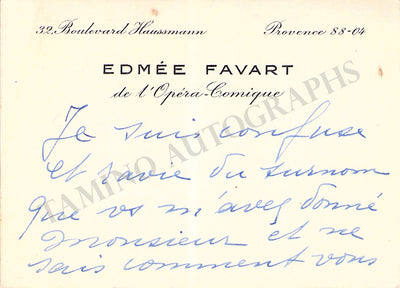 32, Boulevard Haussmann Provence 88-04
EDMÉE FAVART
de l'Opéra-Comique
Je suis confuse
et ravie du surnom
que vs m'avez donné
Monsieur et ne
sais comment vous
TAMINO AUTOGRAPHS